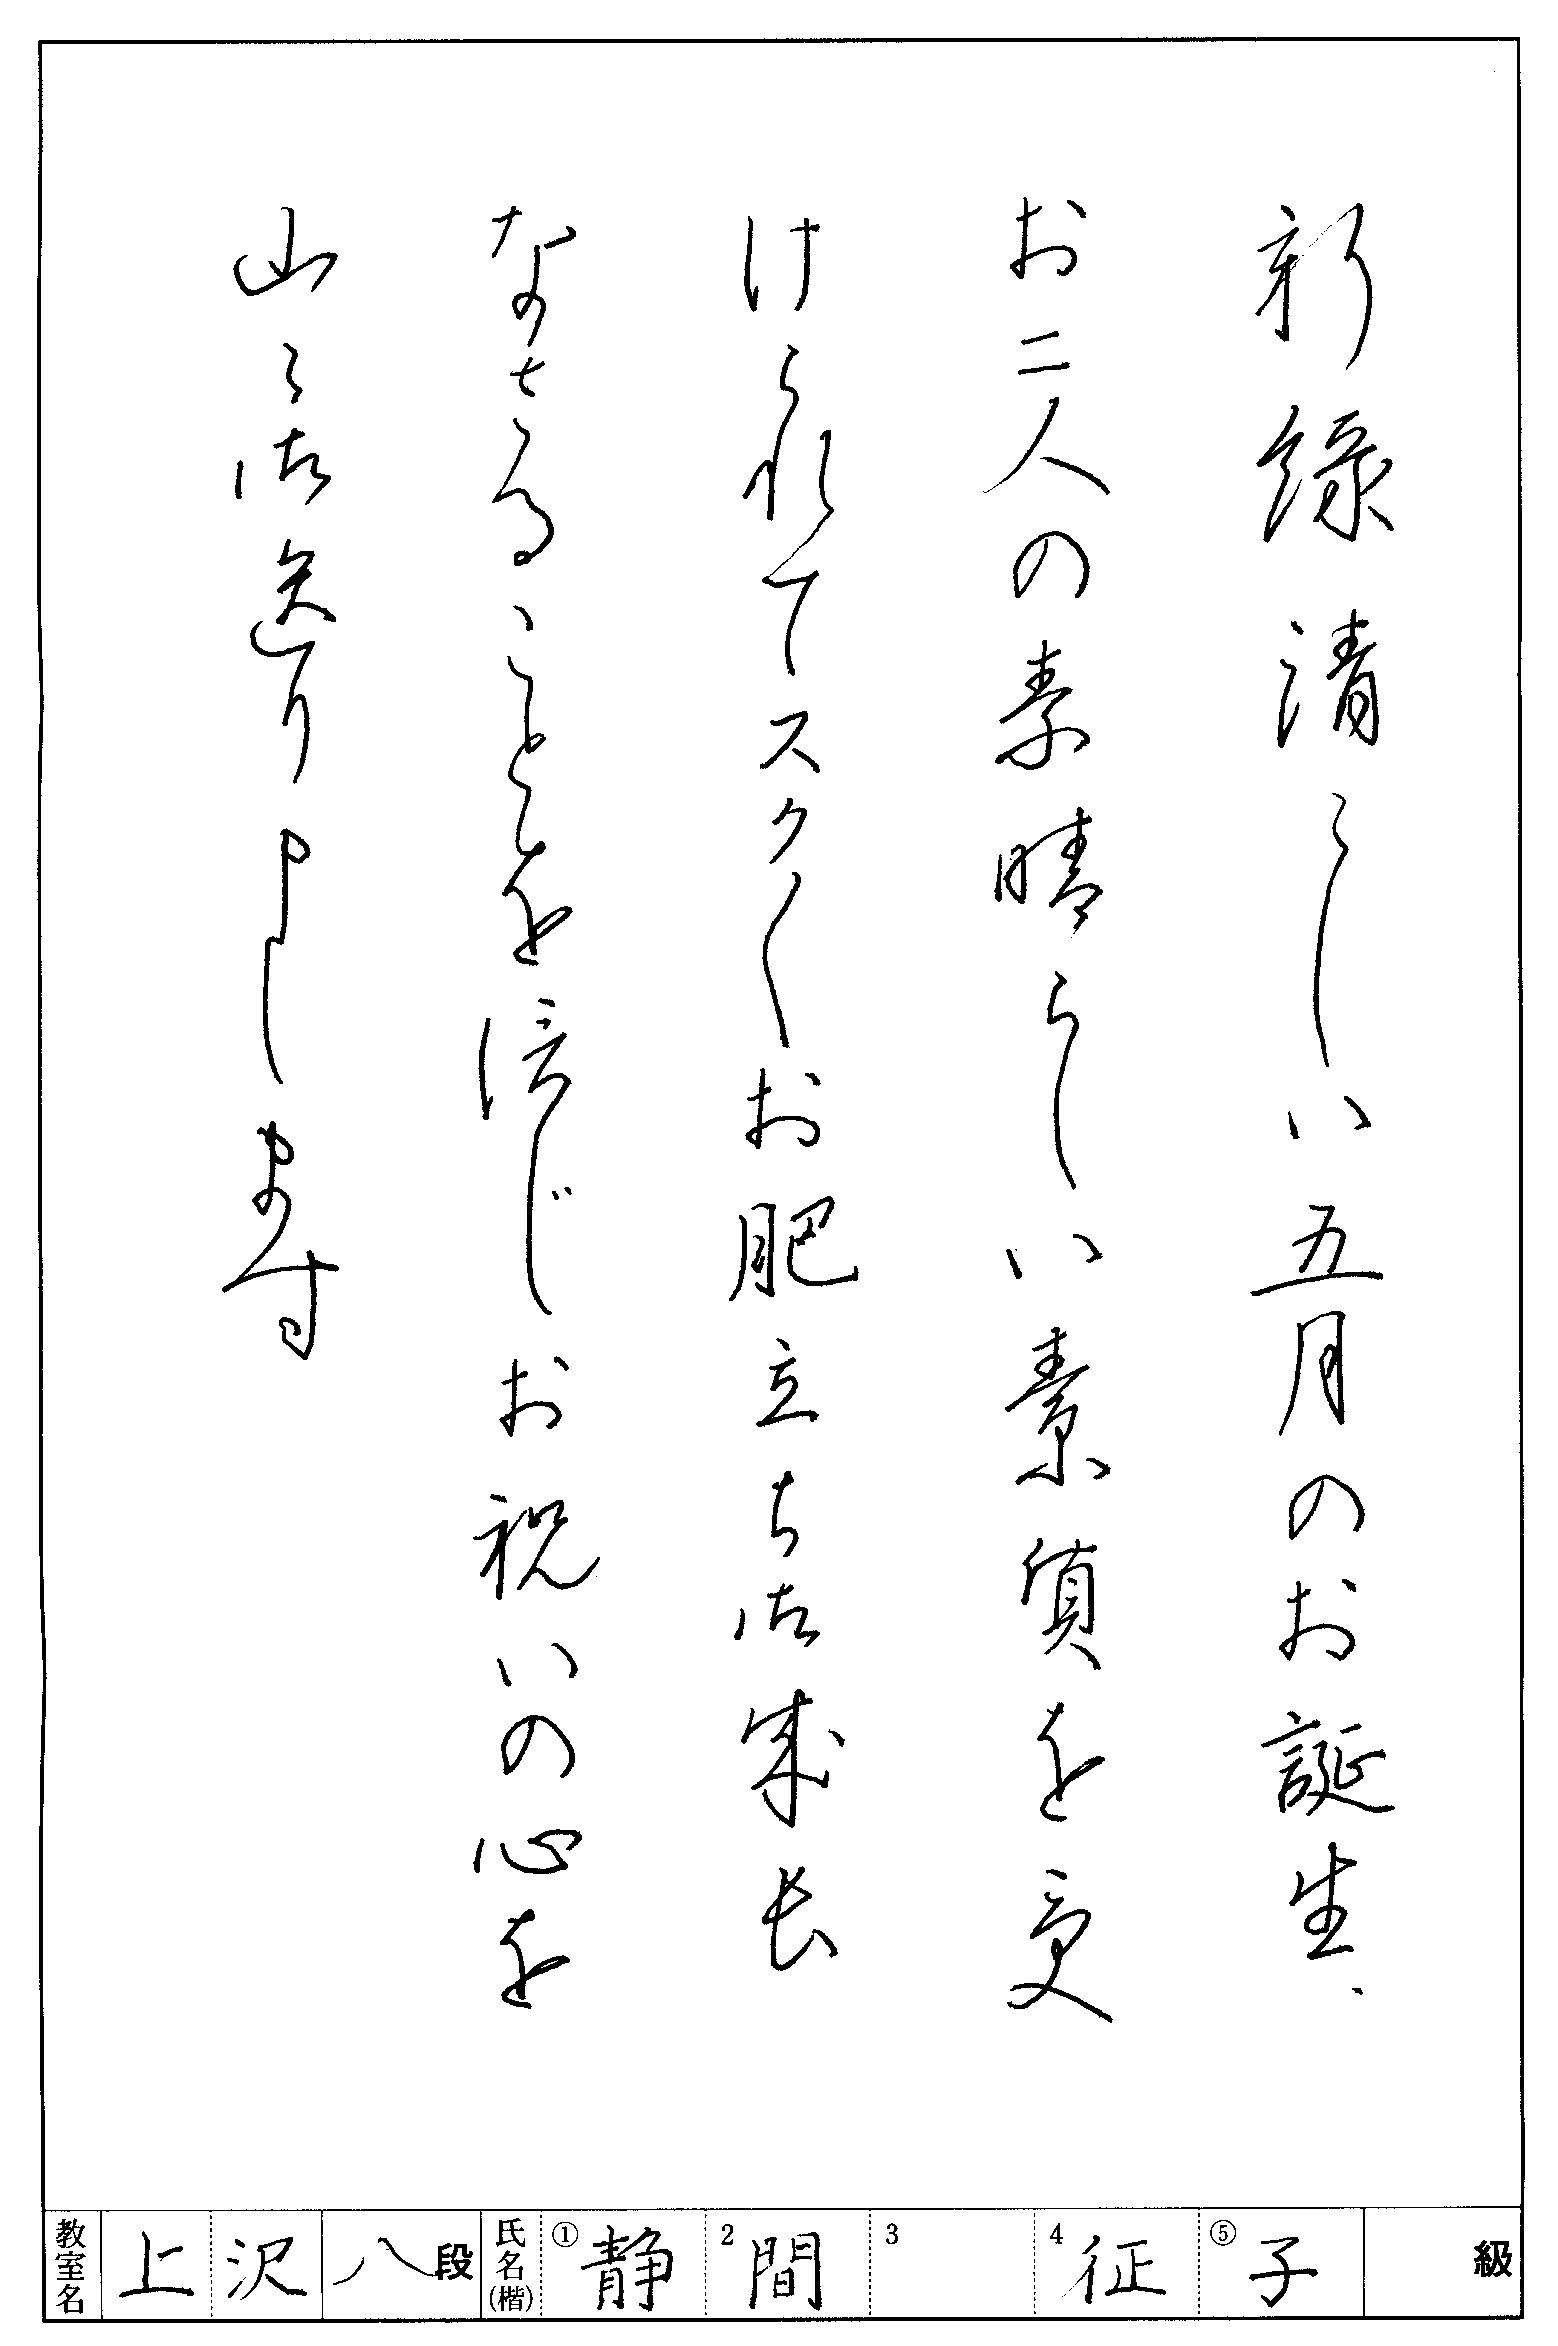 新緑清々しい五月のお誕生、
お二人の素晴らしい素質を受
けられてスク〱お肥立ち御成長
なさることを信じお祝いの心を
山々御送り申し ます
教室名 上沢 八段 氏名(楷) ① 静 2 間 3 4 征 ⑤ 子 級